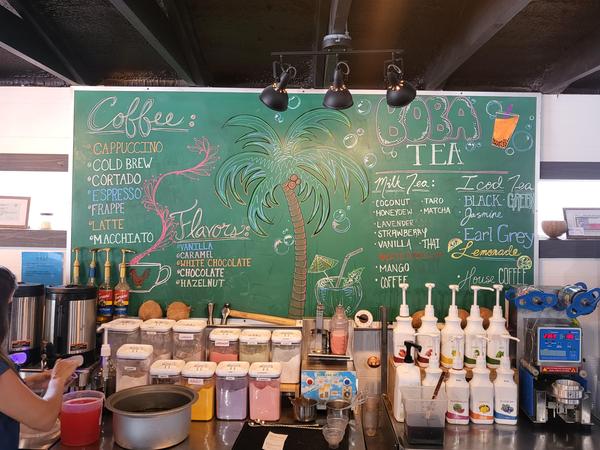 Coffee:
CAPPUCCINO
COLD BREW
CORTADO
ESPRESSO
FRAPPE
LATTE
MACCHIATO
Flavors:
VANILLA
CARAMEL
WHITE CHOCOLATE
CHOCOLATE
HAZELNUT
BOBA
TEA
Milk Tea:
COCONUT · TARO
HONEYDEW · MATCHA
LAVENDER
STRAWBERRY
VANILLA · THAI
MANGO
COFFEE
Iced Tea
BLACK GREEN
Jasmine
Earl Grey
Lemonade
House COFFEE